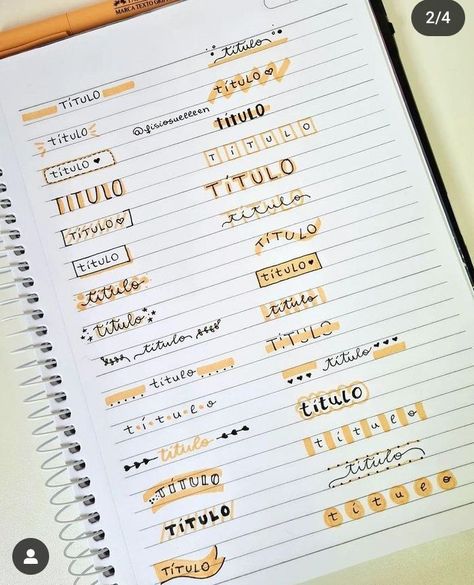 2/4
MARCA TEXTO
TÍTULO
título
@fisiosuelleen
título ♥
TÍTULO
TÍTULO ♡
TÍTULO
título
título
título
título
título
título
TÍTULO
TÍTULO
TÍTULO
título
título ♡
título
TÍTULO
TÍTULO
título
TÍTULO
TÍTULO ♥
título
TÍTULO
título ♥♥♥
título
título
título
título